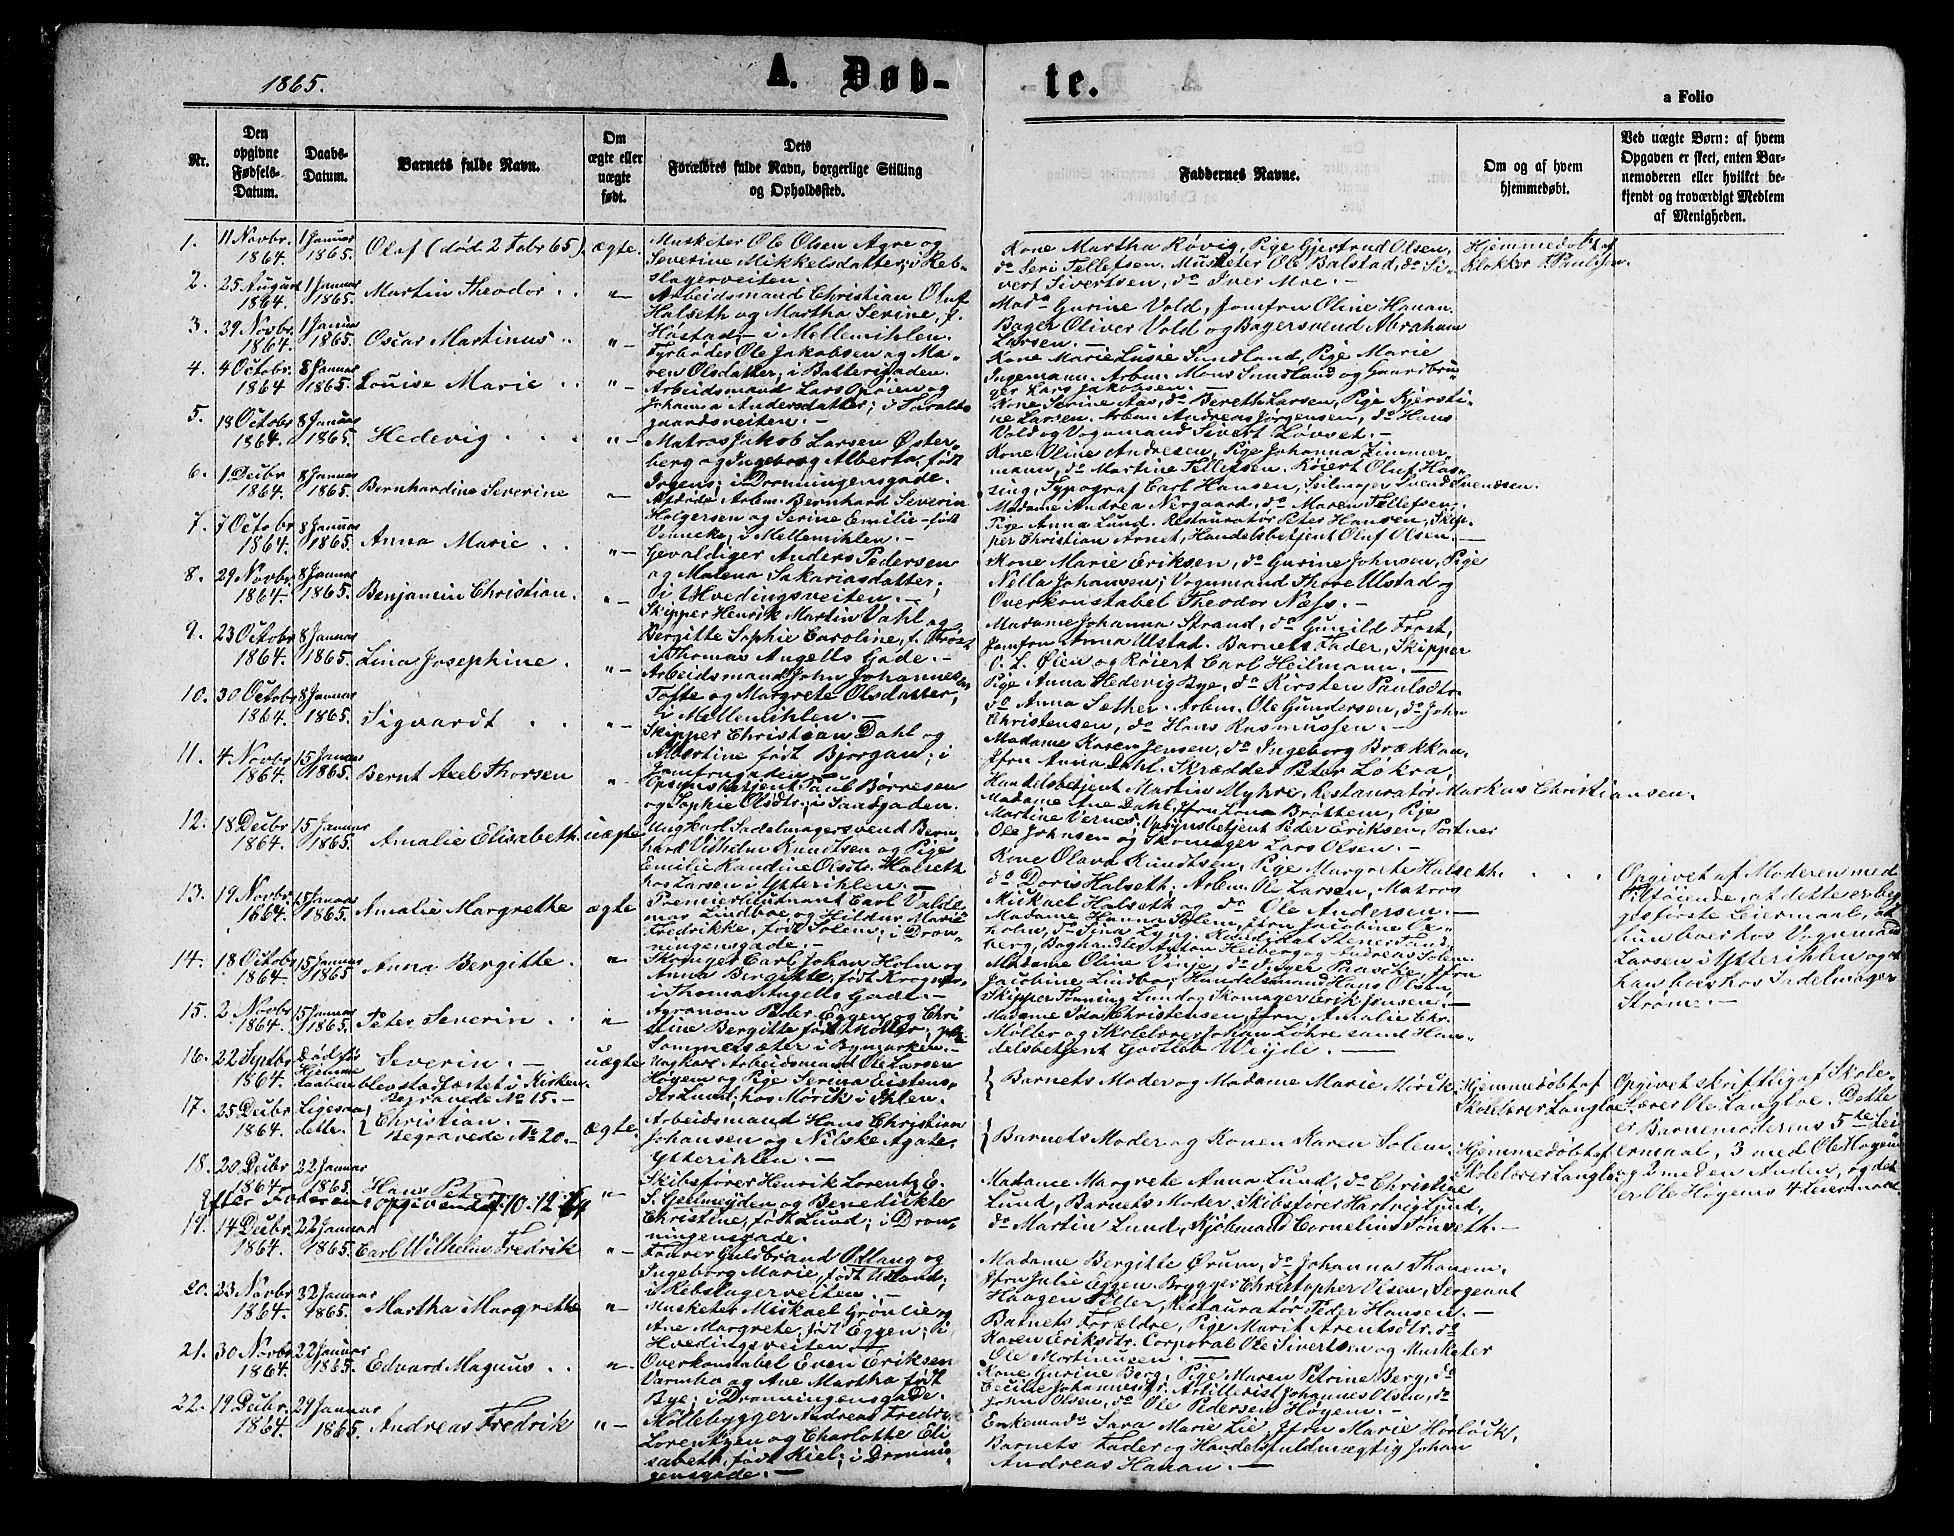 1865.
A. Døb-
te.
a Folio
Nr.
Den opgivne Fødsels-Datum.
Daabs-Datum.
Barnets fulde Navn.
Om ægte eller uægte født.
Dets
Forældres fulde Navn, borgerlige Stilling
og Opholdssted.
Faddernes Navne.
Om og af hvem
hjemmedøbt.
Ved uægte Børn: af hvem
Opgaven er skeet, enten Bar-
nemoderen eller hvilket be-
kjendt og troværdigt Medlem
af Menigheden.
1. 11 Novbr. 1864. 1 Januar 1865. Olaf (død 2 Febr 65). ægte.
Musketer Ole Olsen Agre og
Severine Mikkelsdatter; i Reb-
slagerveiten.
Kone Martha Røvig, Pige Gjertrud Olsen,
do Seri Tellefsen. Musketer Ole Balstad, do Si-
vert Sivertsen, do Iver Moe.
Hjemmedøbt af
Klokker Paulsen.
2. 25 August 1864. 1 Januar 1865. Martin Theodor. "
Arbeidsmand Christian Oluf
Halseth og Martha Serine, f.
Høstad; i Mellemihlen.
Mada Gurine Vold, Jomfru Oline Hanan.
Bager Oliver Vold og Bagersvend Abraham
Larsen.
3. 29 Novbr. 1864. 1 Januar 1865. Oscar Martinus. "
Fyrbøder Ole Jakobsen og Ma-
ren Olsdatter; i Batterigaden.
Kone Marie Lusie Sundland, Pige Marie
Ingemann. Arbm. Mons Sundland og Gaardbru-
ger Lars Jakobsen.
4. 4 Octobr. 1864 8 Januar 1865. Louise Marie. "
Arbeidsmand Lars Opøien og
Johanna Andersdatter; i Haralds-
gaardsveiten.
Kone Serine Aas, do Bereth Larsen, Pige Kjersti-
ne Larsen. Arbm. Andreas Jørgensen, do Hans
Vold og Vognmand Sivert Løvset.
5. 18 Octobr 1864. 8 Januar 1865. Hedevig. "
Matros Jakob Larsen Øster-
berg og Ingeborg Alberta, født
Irgens; i Dronningensgade.
Kone Oline Andresen, Pige Johanna Zimmer-
mann, do Martine Tellefsen. Røiert Oluf Has-
sing, Typograf Carl Hansen, Seilmager Svend Svendsen.
6. 1 Decbr 1864. 8 Januar 1865. Bernhardine Severine "
Afdøde Arbm. Bernhard Severin
Holgersen og Serine Emilie født
Vinneke; i Mellemihlen.
Madame Andrea Nergaard, do Maren Tellefsen,
Pige Anna Lund. Restauratør Peter Hansen, Skip-
per Christian Arnet, Handelsbetjent Oluf Olsen.
7. 7 Octobr 1864. 8 Januar 1865. Anna Marie. "
Gevaldiger Anders Pedersen
og Malena Sakariasdatter;
i Hvedingsveiten.
Kone Marie Eriksen, do Gurine Johnsen, Pige
Nella Johansen; Vognmand Thore Ulstad og
Overkonstabel Theodor Næss.
8. 29 Novbr. 1864. 8 Januar 1865. Benjamin Christian. "
Skipper Henrik Martin Dahl og
Bergitte Sophie Caroline, f. Frost
i Thomas Angells Gade.
Madame Johanna Strand, do Gunild Frost,
Jomfru Anna Ulstad. Barnets Fader, Skipper
O. L. Øien og Røiert Carl Heilmann.
9. 23 Octobr 1864. 8 Januar 1865. Lina Josephine. "
Arbeidsmand John Johannesen
Tofte og Margrete Olsdatter,
i Mellemihlen.
Pige Anna Hedevig Bye, do Kirsten Paulsdtr.
do Anna Sæther. Arbm. Ole Gundersen, do John
Christensen, do Hans Rasmussen.
10. 30 Octobr 1864. 8 Januar 1865. Sigvardt "
Skipper Christian Dahl og
Albertine født Bjorgan; i
Jomfrugaden.
Madame Karen Jensen, do Ingeborg Brækkan,
Jfru Anna Dahl. Skrædder Peter Løkra,
Handelsbetjent Martin Myhre, Restauratør Markus Christiansen.
11. 4 Novbr 1864. 15 Januar 1865. Bernt Axel Thorsen "
Opsynsbetjent Paul Børresen
og Sophie Olsdtr.; i Sandgaden.
Madame Ane Dahl, Jfru Lena Brøttem, Pige
Martine Vernes; Opsynsbetjent Peder Eriksen, Portner
Ole Johnsen og Skomager Lars Olsen.
12. 18 Decbr 1864. 15 Januar 1865. Amalie Elisabeth. uægte
Ungkarl Sadelmagersvend Bern-
hard Vilhelm Knudtsen og Pige
Emilie Randine Olsdtr. Halseth
hos Larsen i Ytterihlen.
Kone Olava Knudtsen, Pige Margrete Halseth.
do Doris Halseth. Arbm. Ole Larsen, Matros
Mickael Halseth og do Ole Andersen.
Opgivet af Moderen med
Tilføiende, at dette er beg-
ges første Leiermaal, at
hun boer hos Vognmand
Larsen i Ytterihlen og at
han boer hos Sadelmager
Strøm.
13. 19 Novbr. 1864. 15 Januar 1865. Amalie Margrethe ægte
Premierlieutnant Carl Valde-
mar Lindboe og Hildur Marie
Fredrikke, født Solem; i Dron-
ningensgade.
14. 18 Octobr 1864. 15 Januar 1865. Anna Bergitte. "
Skomager Carl Johan Holm og
Anna Bergitte, født Krogness
i Thomas Angells Gade.
Madame Oline Vinje, do Inger Paaske, Jfru
Jacobine Lindbo; Handelsmand Hans Olsen,
Skipper Tønning Lund og Skomager Erik Jensen.
15. 2 Novbr. 1864. 15 Januar 1865. Peter Severin. "
Agronom Peder Eggen og Chri
stine Bergitte født Møller; paa
Sommersæter i Bymarken.
Madame Ida Christensen, Jfru Amalie Chr.
Møller og Skolelærer Johan Løhre samt Han-
delsbetjent Gottleb Weyde.
16. 22 Septbr 1864. Død før Hjemme Daaben Severin. uægte
blev stadfæstet i Kirken.
Begravede No 15.
Ungkarl Arbeidsmand Ole Larsen
Høyem og Pige Serina Eistens-
dr Lund; hos Mørik i Ihlen.
Barnets Moder og Madame Marie Mørik.
Hjemmedøbt af
Skolelærer Langloe.
Opgivet skriftlig af Skole-
lærer Ole Langloe. Dette
er Barnemoderens 5te Lei-
ermaal, 3 med Ole Høgem
og 2 med en Anden, og det
er Ole Høgems 4 Leiermaal.
17. 25 Decbr 1864. Ligesaa dette. Christian. ægte.
Begravede No 20.
Arbeidsmand Hans Christian
Johansen og Nilske Agate,
Ytterihlen.
Barnets Moder og Konen Karen Solem
Hjemmedøbt af
Skolelærer Langloe
18. 20 Decbr 1864. 22 Januar 1865. Hans Peter "
Efter Faderen opgivende 10.12.64
Skibsfører Henrik Lorentz E.
S. Gjelmeyden og Benedikte
Christine, født Lund; i Dron-
ningensgade.
Madame Margrete Anna Lund, do Christine
Lund, Barnets Moder, Skibsfører Hartvig Lund,
do Martin Lund, Kjøbmand Cornelius Tønseth.
19. 14 Decbr 1864. 22 Januar 1865. Carl Wilhelm Fredrik "
Fourer Guldbrand Ottlang og
Ingeborg Marie, født Usland;
i Rebslagerveiten.
Madame Bergitte Ørum, do Johanna Thanem.
Jfru Julie Eggen. Brygger Christopher Olsen, Sergeant
Haagen Filler, Restauratør Peder Hansen.
20. 23 Novbr 1864. 22 Januar 1865. Martha Margrethe "
Musketer Mickael Grønlie og
Ane Margrete, født Eggen; i
Hvedingsveiten.
Barnets Forældre, Pige Marit Arentsdtr. do
Karen Eriksdtr. Corporal Ole Sivertsen og Musketer
Ole Mortinusen.
21. 30 Novbr 1864. 22 Januar 1865. Edvard Magnus. "
Overkonstabel Even Eriksen
Varmbo og Ane Martha født
Bye; i Dronningensgade.
Kone Gurine Berg, Pige Maren Petrine Berg, do
Cecilie Johannesdtr. Artillerist Johannes Olsen, do
John Olsen, do Ole Pedersen Høyem.
22. 19 Decbr. 1864. 29 Januar 1865. Andreas Fredrik "
Møllebygger Andreas Fredrik
Lorentzen og Charlotte Eli
sabeth, født Kiel; i Dronnin-
gensgade.
Enkemada Sara Marie Lie, Jfru Marie Horløck,
Barnets Fader og Handelsfuldmægtig Johan
Andreas Hanan.